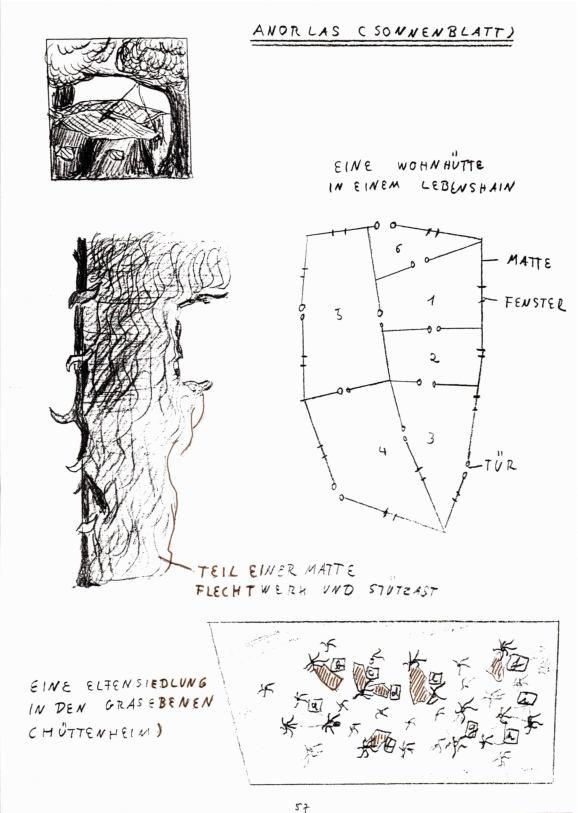 ANORLAS (SONNENBLATT)
EINE WOHNHÜTTE
IN EINEM LEBENSHAIN
MATTE
FENSTER
TÜR
6
5
1
2
4
3
TEIL EINER MATTE
FLECHTWERK UND STÜTZAST
EINE ELFENSIEDLUNG
IN DEN GRASEBENEN
(HÜTTENHEIM)
57